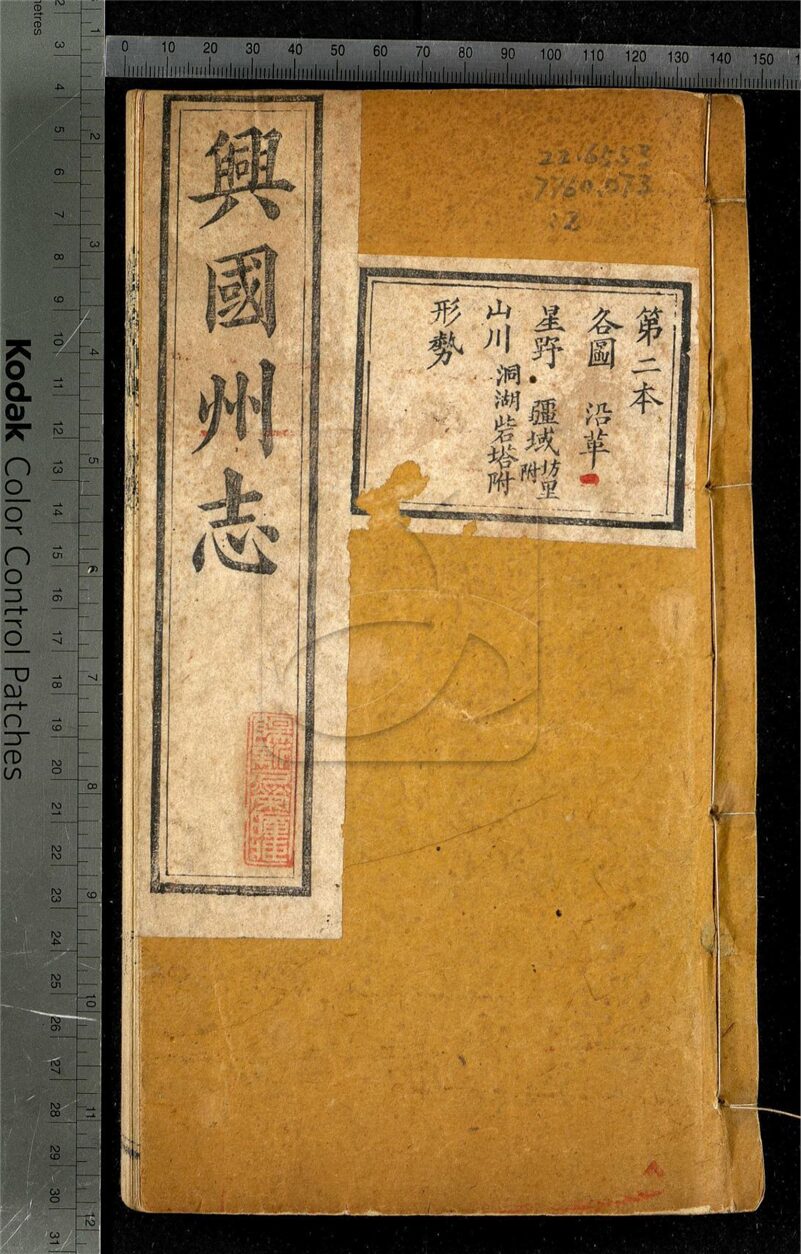 興國州志
第二本
各圖 沿革
星野 疆域坊里附
山川 洞湖砦塔附
形勢
22.6553
7760.073
:2
Kodak Color Control Patches
metres
0 10 20 30 40 50 60 70 80 90 100 110 120 130 140 150
2 3 4 5 6 7 8 9 10 11 12 13 14 15 16 17 18 19 20 21 22 23 24 25 26 27 28 29 30 31
1 2 3 4 5 6 7 8 9 10 11 12